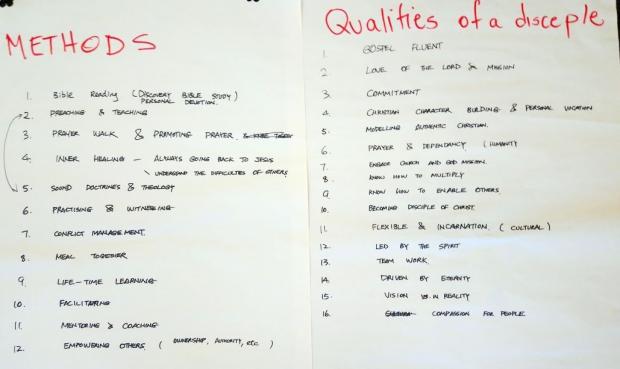 METHODS
1. Bible Reading (DISCOVERY BIBLE STUDY)
PERSONAL DEVOTION.
2. PREACHING & TEACHING
3. PRAYER WALK & PROMOTING PRAYER
4. INNER HEALING – ALWAYS GOING BACK TO JESUS
UNDERSTAND THE DIFFICULTIES OF OTHERS
5. SOUND DOCTRINES & THEOLOGY
6. PRACTISING & WITNESSING
7. CONFLICT MANAGEMENT
8. MEAL TOGETHER
9. LIFE-TIME LEARNING
10. FACILITATING
11. MENTORING & COACHING
12. EMPOWERING OTHERS. ( OWNERSHIP, AUTHORITY, etc )
Qualities of a disceple
1 GOSPEL FLUENT
2 LOVE OF THE LORD & MISSION
3. COMMITMENT
4. CHRISTIAN CHARACTER BUILDING & PERSONAL VOCATION
5. MODELLING AUTHENTIC CHRISTIAN.
6. PRAYER & DEPENDANCY (HUMANITY
7. ENGAGE CHURCH AND GOD MISSION.
8. KNOW HOW TO MULTIPLY
9. KNOW HOW TO ENABLE OTHERS.
10. BECOMING DISCIPLE OF CHRIST.
11. FLEXIBLE & INCARNATION. ( CULTURAL )
12. LED BY THE SPIRIT
13. TEAM WORK
14. DRIVEN BY ETERNITY
15. VISION IN REALITY
16. COMPASSION FOR PEOPLE